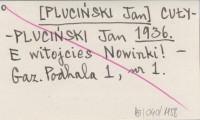 [PLUCIŃSKI Jan] CUŁY-
-PLUCIŃSKI Jan 1936.
E witojcies Nowinki! -
Gaz. Podhala 1, nr 1.